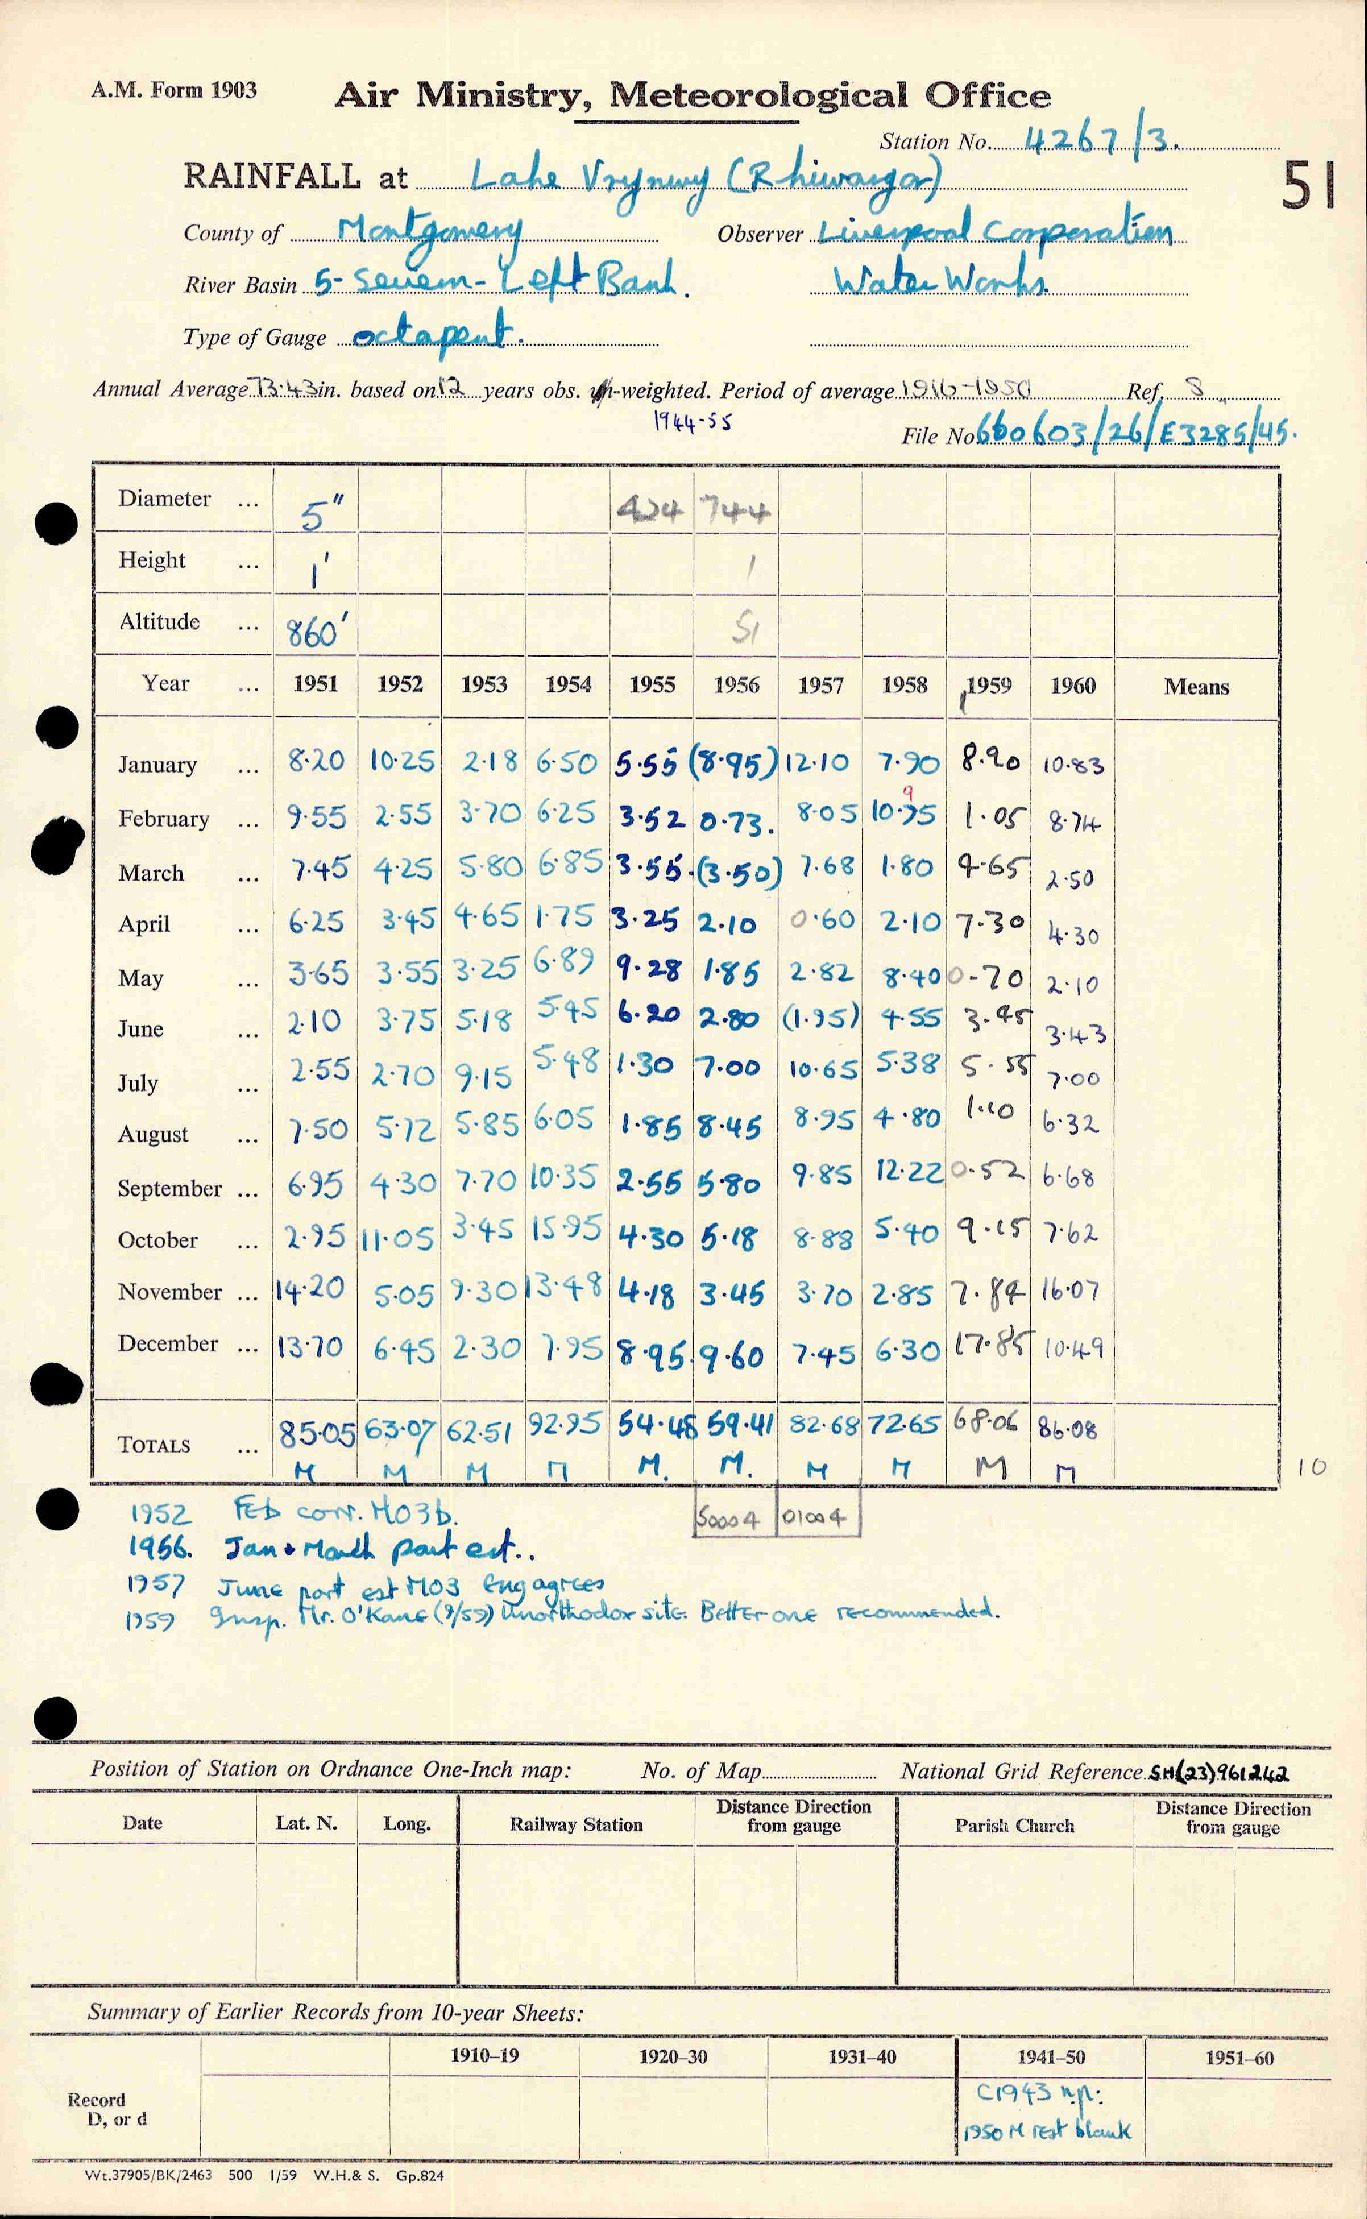 A.M. Form 1903 Air Ministry, Meteorological Office
Station No. 4267/3.
RAINFALL at Lake Vrynwy (Rhiwargor) 51
County of Montgomery Observer Liverpool Corporation
River Basin 5- Severn - Left Bank. Water Works.
Type of Gauge octapent.
Annual Average 73.43 in. based on 12 years obs. un-weighted. Period of average 1916-1950 Ref. 8
1944-55
File No. 660603/26/E3285/45.
Diameter ... 5" 424 744
Height ... 1' 1
Altitude ... 860' 51
Year ... 1951 1952 1953 1954 1955 1956 1957 1958 1959 1960 Means
January ... 8.20 10.25 2.18 6.50 5.55 (8.95) 12.10 7.90 8.90 10.83
9
February ... 9.55 2.55 3.70 6.25 3.52 0.73. 8.05 10.95 1.05 8.74
March ... 7.45 4.25 5.80 6.85 3.55. (3.50) 7.68 1.80 4.65 2.50
April ... 6.25 3.45 4.65 1.75 3.25 2.10 0.60 2.10 7.30 4.30
May ... 3.65 3.55 3.25 6.89 9.28 1.85 2.82 8.40 0.70 2.10
June ... 2.10 3.75 5.18 5.45 6.20 2.80 (1.95) 4.55 3.45 3.43
July ... 2.55 2.70 9.15 5.48 1.30 7.00 10.65 5.38 5.55 7.00
August ... 7.50 5.72 5.85 6.05 1.85 8.45 8.95 4.80 1.10 6.32
September ... 6.95 4.30 7.70 10.35 2.55 5.80 9.85 12.22 0.52 6.68
October ... 2.95 11.05 3.45 15.95 4.30 5.18 8.88 5.40 9.15 7.62
November ... 14.20 5.05 9.30 13.48 4.18 3.45 3.70 2.85 7.84 16.07
December ... 13.70 6.45 2.30 7.95 8.95. 9.60 7.45 6.30 17.85 10.49
TOTALS ... 85.05 63.07 62.51 92.95 54.48 59.41 82.68 72.65 68.06 86.08
M M M M M. M. M M M M 10
1952 Feb corr. MO3b. 50004 01004
1956. Jan + March part est..
1957 June part est MO3 eng agrees
1959 Insp. Mr. O'Kane (9/59) Unorthodox site. Better one recommended.
Position of Station on Ordnance One-Inch map: No. of Map National Grid Reference SH(23)961242
Date Lat. N. Long. Railway Station Distance Direction from gauge Parish Church Distance Direction from gauge
Summary of Earlier Records from 10-year Sheets:
1910–19 1920–30 1931–40 1941–50 1951–60
Record C1943 n.p:
D, or d 1950 M rest blank
Wt.37905/BK/2463 500 1/59 W.H.& S. Gp.824